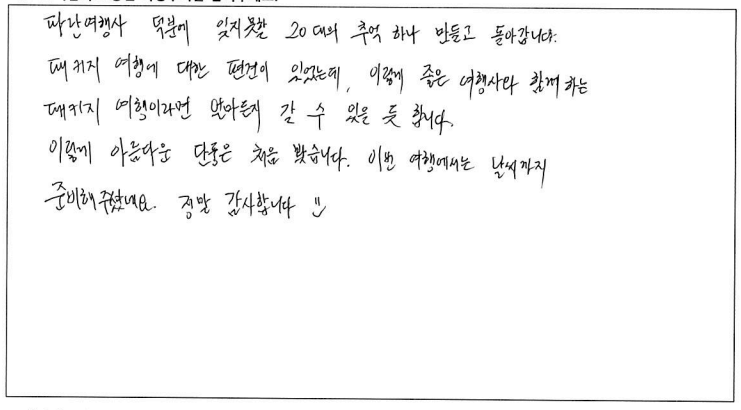 파란여행사 덕분에 잊지못할 20대의 추억 하나 만들고 돌아갑니다.
패키지 여행에 대한 편견이 있었는데, 이렇게 좋은 여행사와 함께 하는
패키지 여행이라면 얼마든지 갈 수 있을 듯 합니다.
이렇게 아름다운 단풍은 처음 봤습니다. 이번 여행에서는 날씨까지
준비해 주셨네요. 정말 감사합니다 :)